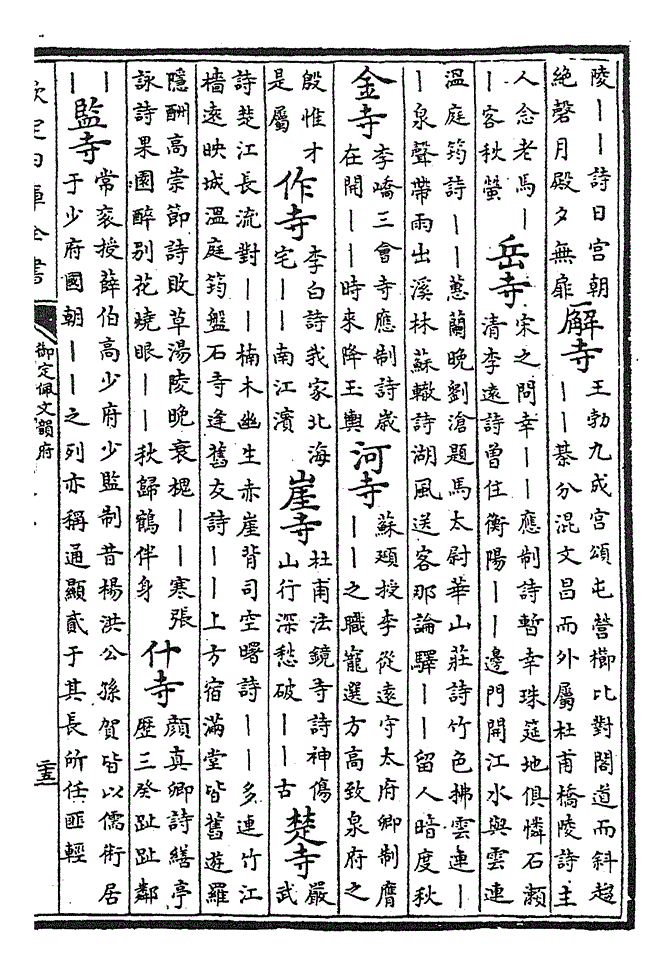 陵丨丨詩日宫朝
絶磬月殿夕無扉
廨寺
王勃九成宫頌屯營櫛比對閣道而斜趨
丨丨綦分混文昌而外屬杜甫橋陵詩主
人念老馬丨
丨客秋螢
岳寺
宋之問幸丨丨應制詩暫幸珠筵地俱憐石瀨
清李遠詩曾住衡陽丨丨邊門開江水與雲連
温庭筠詩丨丨蕙蘭晚劉滄題馬太尉華山莊詩竹色拂雲連丨
丨泉聲帶雨出溪林蘇轍詩湖風送客那論驛丨丨留人暗度秋
金寺
李嶠三會寺應制詩歲
在開丨丨時來降玉輿
河寺
蘇頲授李從遠守太府卿制膺
丨丨之職寵選方高致泉府之
殷惟才
是屬
作寺
李白詩我家北海
宅丨丨南江濱
崖寺
杜甫法鏡寺詩神傷
山行深愁破丨丨古
楚寺
嚴
武
詩楚江長流對丨丨楠木幽生赤崖背司空曙詩丨丨多連竹江
檣遠映城温庭筠盤石寺逢舊友詩丨丨上方宿滿堂皆舊遊羅
隱酬高崇節詩敗草湯陵晚衰槐丨丨寒張
詠詩果園醉别花曉眼丨丨秋歸鶴伴身
什寺
顔真卿詩繕亭
歷三癸趾趾鄰
丨
丨
監寺
常袞授薛伯高少府少監制昔楊洪公孫賀皆以儒術居
于少府國朝丨丨之列亦稱通顯貳于其長所任匪輕
欽定四庫全書
御定佩文韻府